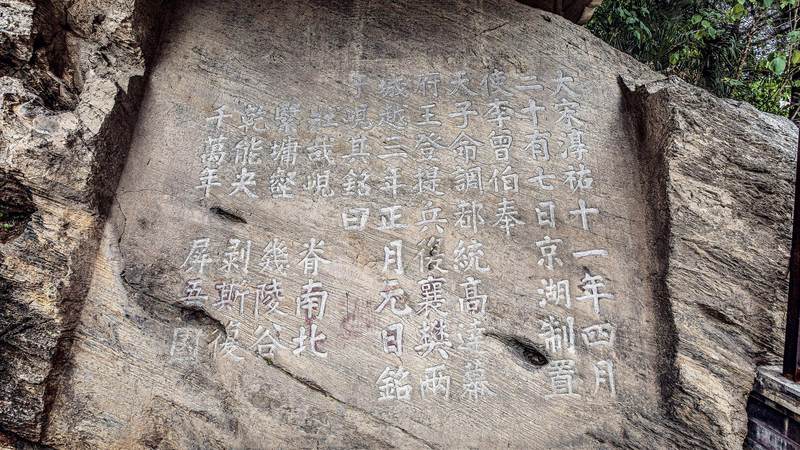 大宋淳祐十一年四月
二十有七日京湖制置
使李曾伯奉
天子命調郡統高達幕
府王登提兵復襄樊两
城越三年正月元日銘
于峴其銘曰
壯哉峴 脊南北
繄墉壑 幾陵谷
乾能夬 剥斯復
千萬年 屏吾國